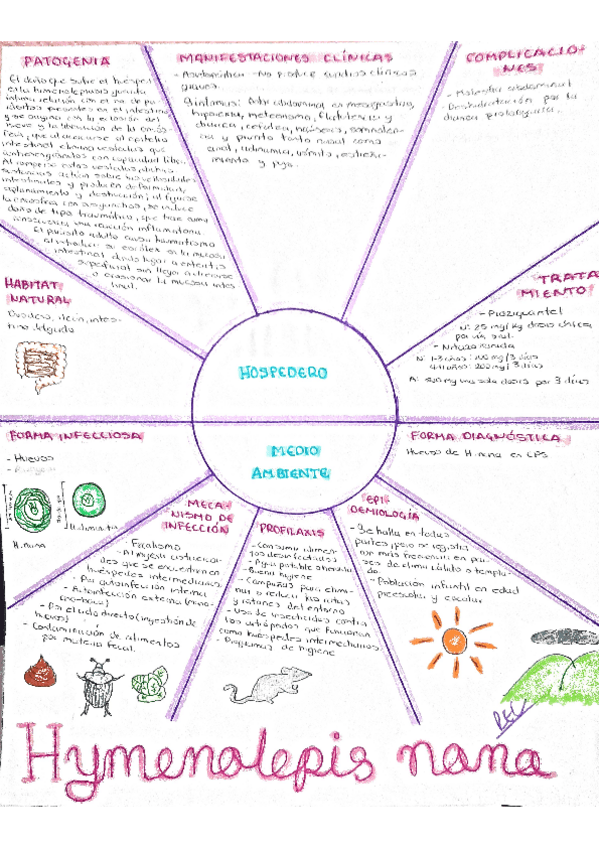 PATOGENIA
El daño que sufre el huésped
en la himenolepiosis guarda
íntima relación con el no. de pa-
rásitos presentes en el intestino
y se origina con la eclosión del
huevo y la liberación de la oncós-
fera, que al acercarse al epitelio
intestinal elimina vesículas que
con capacidad
Al romperse estas vesículas, dichas
sustancias actúan sobre las vellosidades
intestinales y producen deformidad,
aplanamiento y destrucción; al fijarse
la oncosfera con sus ganchos, se induce
daño de tipo traumático, que trae como
consecuencia una reacción inflamatoria.
El parásito adulto causa traumatismo
al introducir su escólex en la mucosa
intestinal dando lugar a enteritis
superficial sin llegar a
o ocasionar la mucosa intes
tinal.
MANIFESTACIONES CLÍNICAS
- Asintomática - No produce síntomas clínicos
graves.
Síntomas: dolor abdominal en mesogastrio,
hiporexia, meteorismo, flatulencias y
diarrea, cefalea, náuseas, somnolen-
cia y prurito tanto nasal como
anal, adinamia, vómito, estreñi-
miento y pujo.
COMPLICACIO-
NES
- Malestar abdominal
- Deshidratación por la
diarrea prolongada.
HABITAT
NATURAL
Duodeno, íleon, intes-
tino delgado
TRATA
MIENTO
- Praziquantel
N: 25 mg/kg dosis única
por vía oral.
- Nitazoxanida
N: 1-3 años: 100 mg/3 días
4-11 años: 200 mg/3 días
A: 500 mg una sola dosis por 3 días
HOSPEDERO
MEDIO
AMBIENTE
FORMA INFECCIOSA
- Huevos
H. nana
FORMA DIAGNÓSTICA
Huevos de H. nana en CPS
MECA
NISMO DE
INFECCIÓN
- Fecalismo
- Al ingerir cisticercoi-
des que se encuentran en
huéspedes intermediarios
- Por autoinfección interna
- Autoinfección externa (mano-
ano-boca)
- Por el ciclo directo (ingestión de
huevos)
- Contaminación de alimentos
por materia fecal.
PROFILAXIS
- Consumir alimen-
tos desinfectados
- Agua potable o hervida
- Buena higiene
- Campañas para elimi-
nar o reducir las ratas
y ratones del entorno
- Uso de insecticidas contra
los artrópodos que funcionan
como huéspedes intermediarios
- Programas de higiene
EPI
DEMIOLOGÍA
- Se halla en todas
partes, pero se registra
con más frecuencia en paí-
ses de clima cálido o templa-
do
- Población infantil en edad
preescolar y escolar
Hymenolepis nana